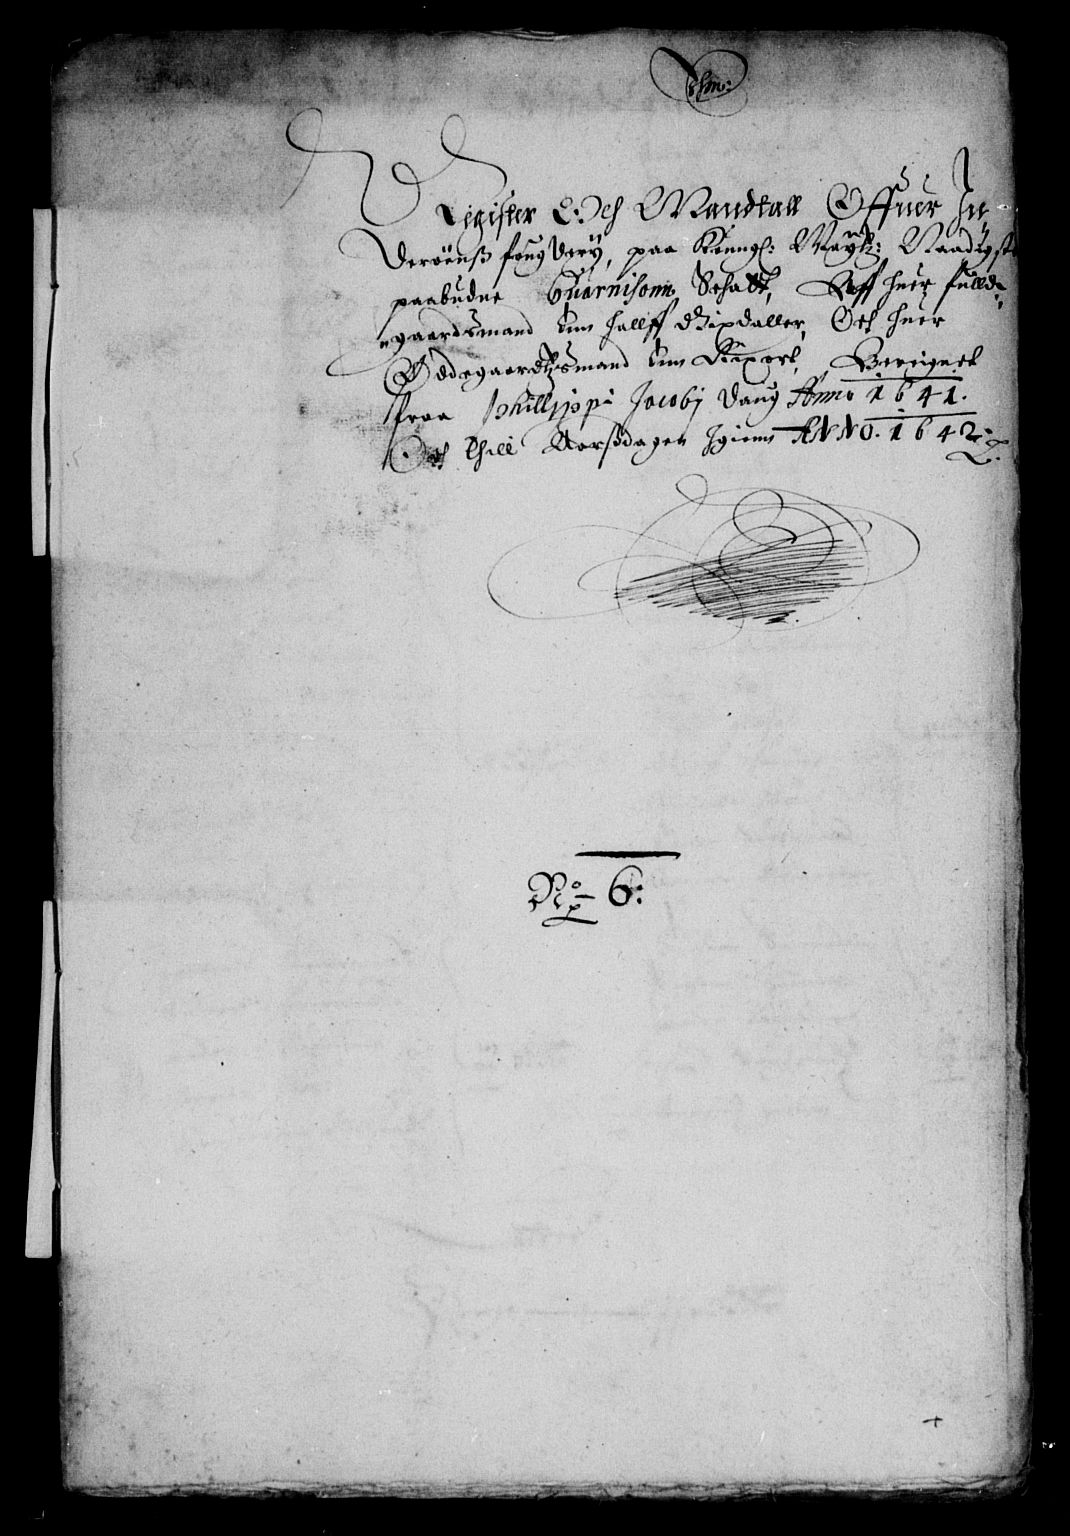 Register Och Mandtall Offuer In
deröens fougderÿ, paa Konngl: Maÿtz: Naadigste
paabudne Guarnisonns Schatt, Aff huer fulld
gaardsmand Enn hallff Rixdaller, Och huer
Ødegaardtzsmand Enn Rixort, Bereignet
fraa Phillippi Jacobj daug Anno 1641.
Och thill Aarsdagen Igienn ANNO. 1642.
No 6: